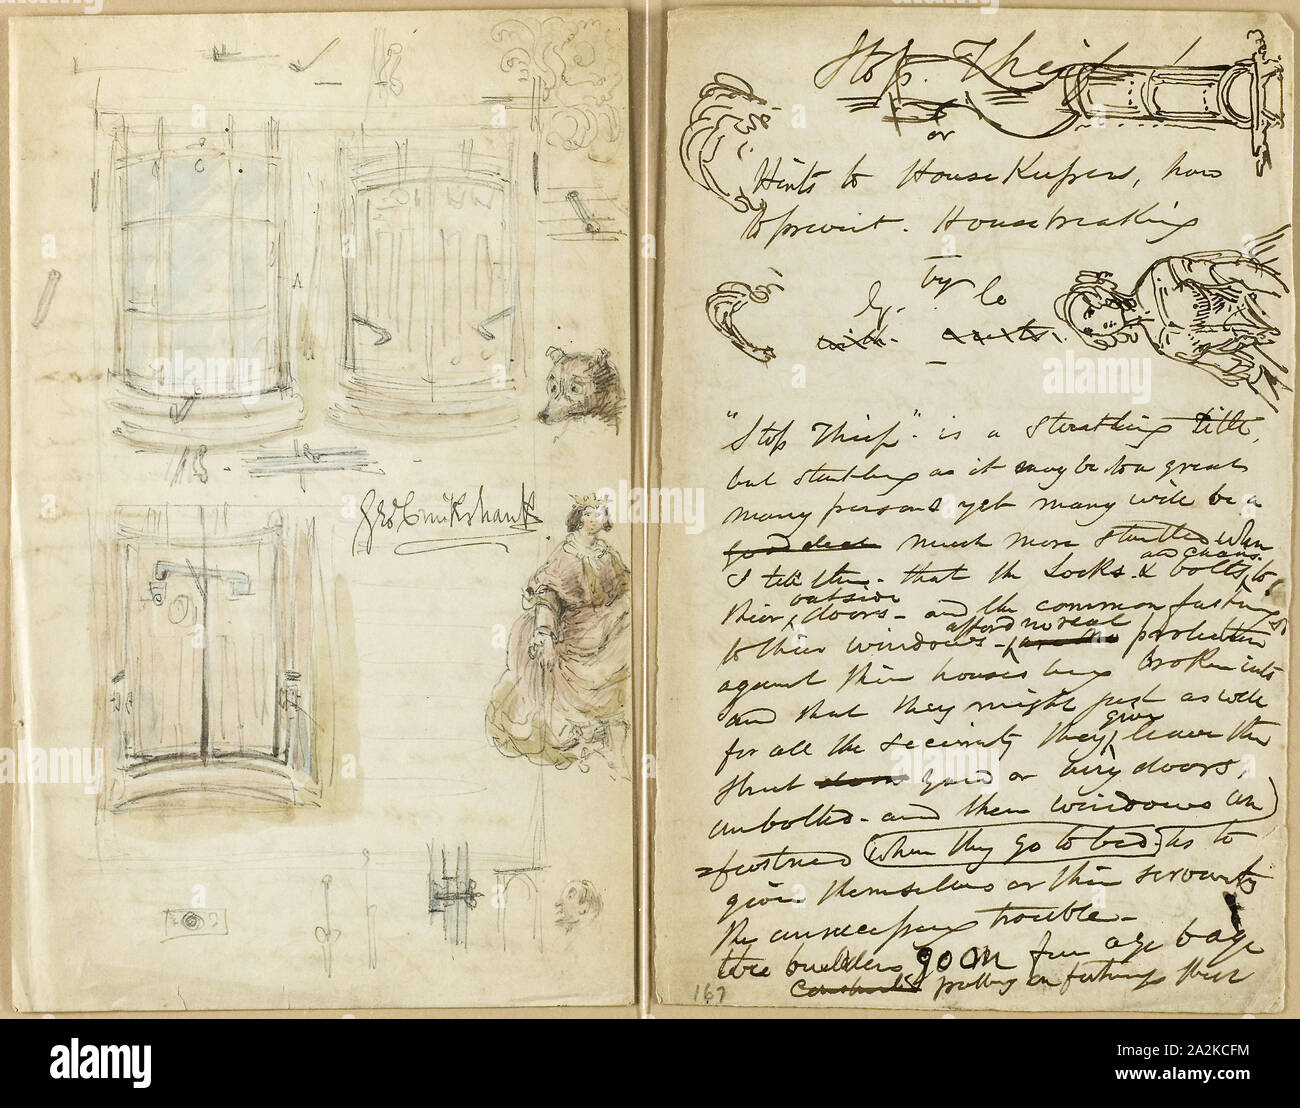 A
Geo Cruikshank
Stop. Thief!
or
Hints to HouseKeepers, how
to prevent. Housebreaking
by
"Stop Thief" - is a startling title,
but startling as it may be to a great
many persons yet many will be a
good deal much more startled when
I tell them - that the Locks & bolts and chains to
their outside doors - and the common fastenings
to their windows - afford no real protection
against their houses being broken into
and that they might just as well
for all the security they give, leave the
street doors yard or area doors,
unbolted - and their windows un
=fastened when they go to bed as to
give themselves or their servants
the unnecessary trouble -
the builders go on from age to age
putting on fastenings
167
alamy
Image ID: A2ZKCFM
www.alamy.com